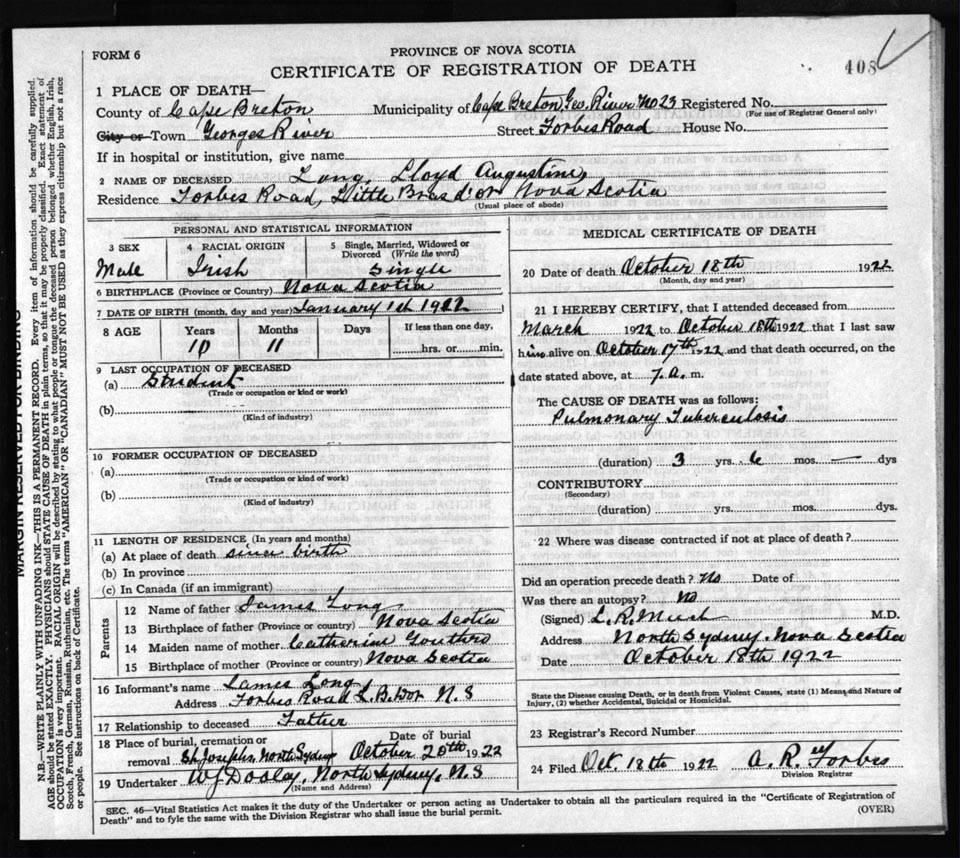 FORM 6
PROVINCE OF NOVA SCOTIA
408
CERTIFICATE OF REGISTRATION OF DEATH
1 PLACE OF DEATH—
County of Cape Breton Municipality of Cape Breton Geo. River No 23 Registered No.
(For use of Registrar General only)
City or Town Georges River Street Forbes Road House No.
If in hospital or institution, give name
2 NAME OF DECEASED Long, Lloyd Augustine
Residence Forbes Road, Little Bras d'or Nova Scotia
(Usual place of abode)
PERSONAL AND STATISTICAL INFORMATION
3 SEX 4 RACIAL ORIGIN 5 Single, Married, Widowed or
Divorced (Write the word)
Male Irish Single
6 BIRTHPLACE (Province or Country) Nova Scotia
7 DATE OF BIRTH (month, day and year) January 1st
8 AGE Years Months Days If less than one day,
10 11 hrs. or min.
9 LAST OCCUPATION OF DECEASED
(a) Student
(Trade or occupation or kind of work)
(b)
(Kind of industry)
10 FORMER OCCUPATION OF DECEASED
(a)
(Trade or occupation or kind of work)
(b)
(Kind of industry)
11 LENGTH OF RESIDENCE (In years and months)
(a) At place of death since birth
(b) In province
(c) In Canada (if an immigrant)
Parents
12 Name of father James Long
13 Birthplace of father (Province or country) Nova Scotia
14 Maiden name of mother Catherine Gouthro
15 Birthplace of mother (Province or country) Nova Scotia
16 Informant's name James Long
Address Forbes Road L. B. Dor N. S
17 Relationship to deceased Father
18 Place of burial, cremation or Date of burial
removal St. Josephs, North Sydney October 20th 1922
19 Undertaker W J Dooley, North Sydney, N. S
(Name and Address)
MEDICAL CERTIFICATE OF DEATH
20 Date of death October 18th 1922
(Month, day and year)
21 I HEREBY CERTIFY, that I attended deceased from
March 1922 to October 18th 1922 that I last saw
him alive on October 17th 1922 and that death occurred, on the
date stated above, at 7. a. m.
The CAUSE OF DEATH was as follows:
Pulmonary Tuberculosis
(duration) 3 yrs. 6 mos. — dys
CONTRIBUTORY
(Secondary)
(duration) yrs. mos. dys.
22 Where was disease contracted if not at place of death?
Did an operation precede death? No Date of
Was there an autopsy? No
(Signed) L. R. M.D.
Address North Sydney. Nova Scotia
Date October 18th 1922
State the Disease causing Death, or in death from Violent Causes, state (1) Means and Nature of
Injury, (2) whether Accidental, Suicidal or Homicidal.
23 Registrar's Record Number
24 Filed Oct. 18th 1922 A. R. Forbes
Division Registrar
SEC. 46—Vital Statistics Act makes it the duty of the Undertaker or person acting as Undertaker to obtain all the particulars required in the "Certificate of Registration of
Death" and to fyle the same with the Division Registrar who shall issue the burial permit.
(OVER)
MARGIN RESERVED FOR BINDING
N.B.—WRITE PLAINLY WITH UNFADING INK—THIS IS A PERMANENT RECORD. Every item of information should be carefully supplied.
AGE should be stated EXACTLY. PHYSICIANS should STATE CAUSE OF DEATH in plain terms, so that it may be properly classified. Exact statement of
OCCUPATION is very important. RACIAL ORIGIN will be described by stating to what people or tongue the deceased person belonged whether English, Irish,
Scotch, French, German, Russian, Ruthenian, etc. The terms "AMERICAN" OR "CANADIAN" MUST NOT BE USED as they express citizenship but not a race
or people. See instructions on back of Certificate.